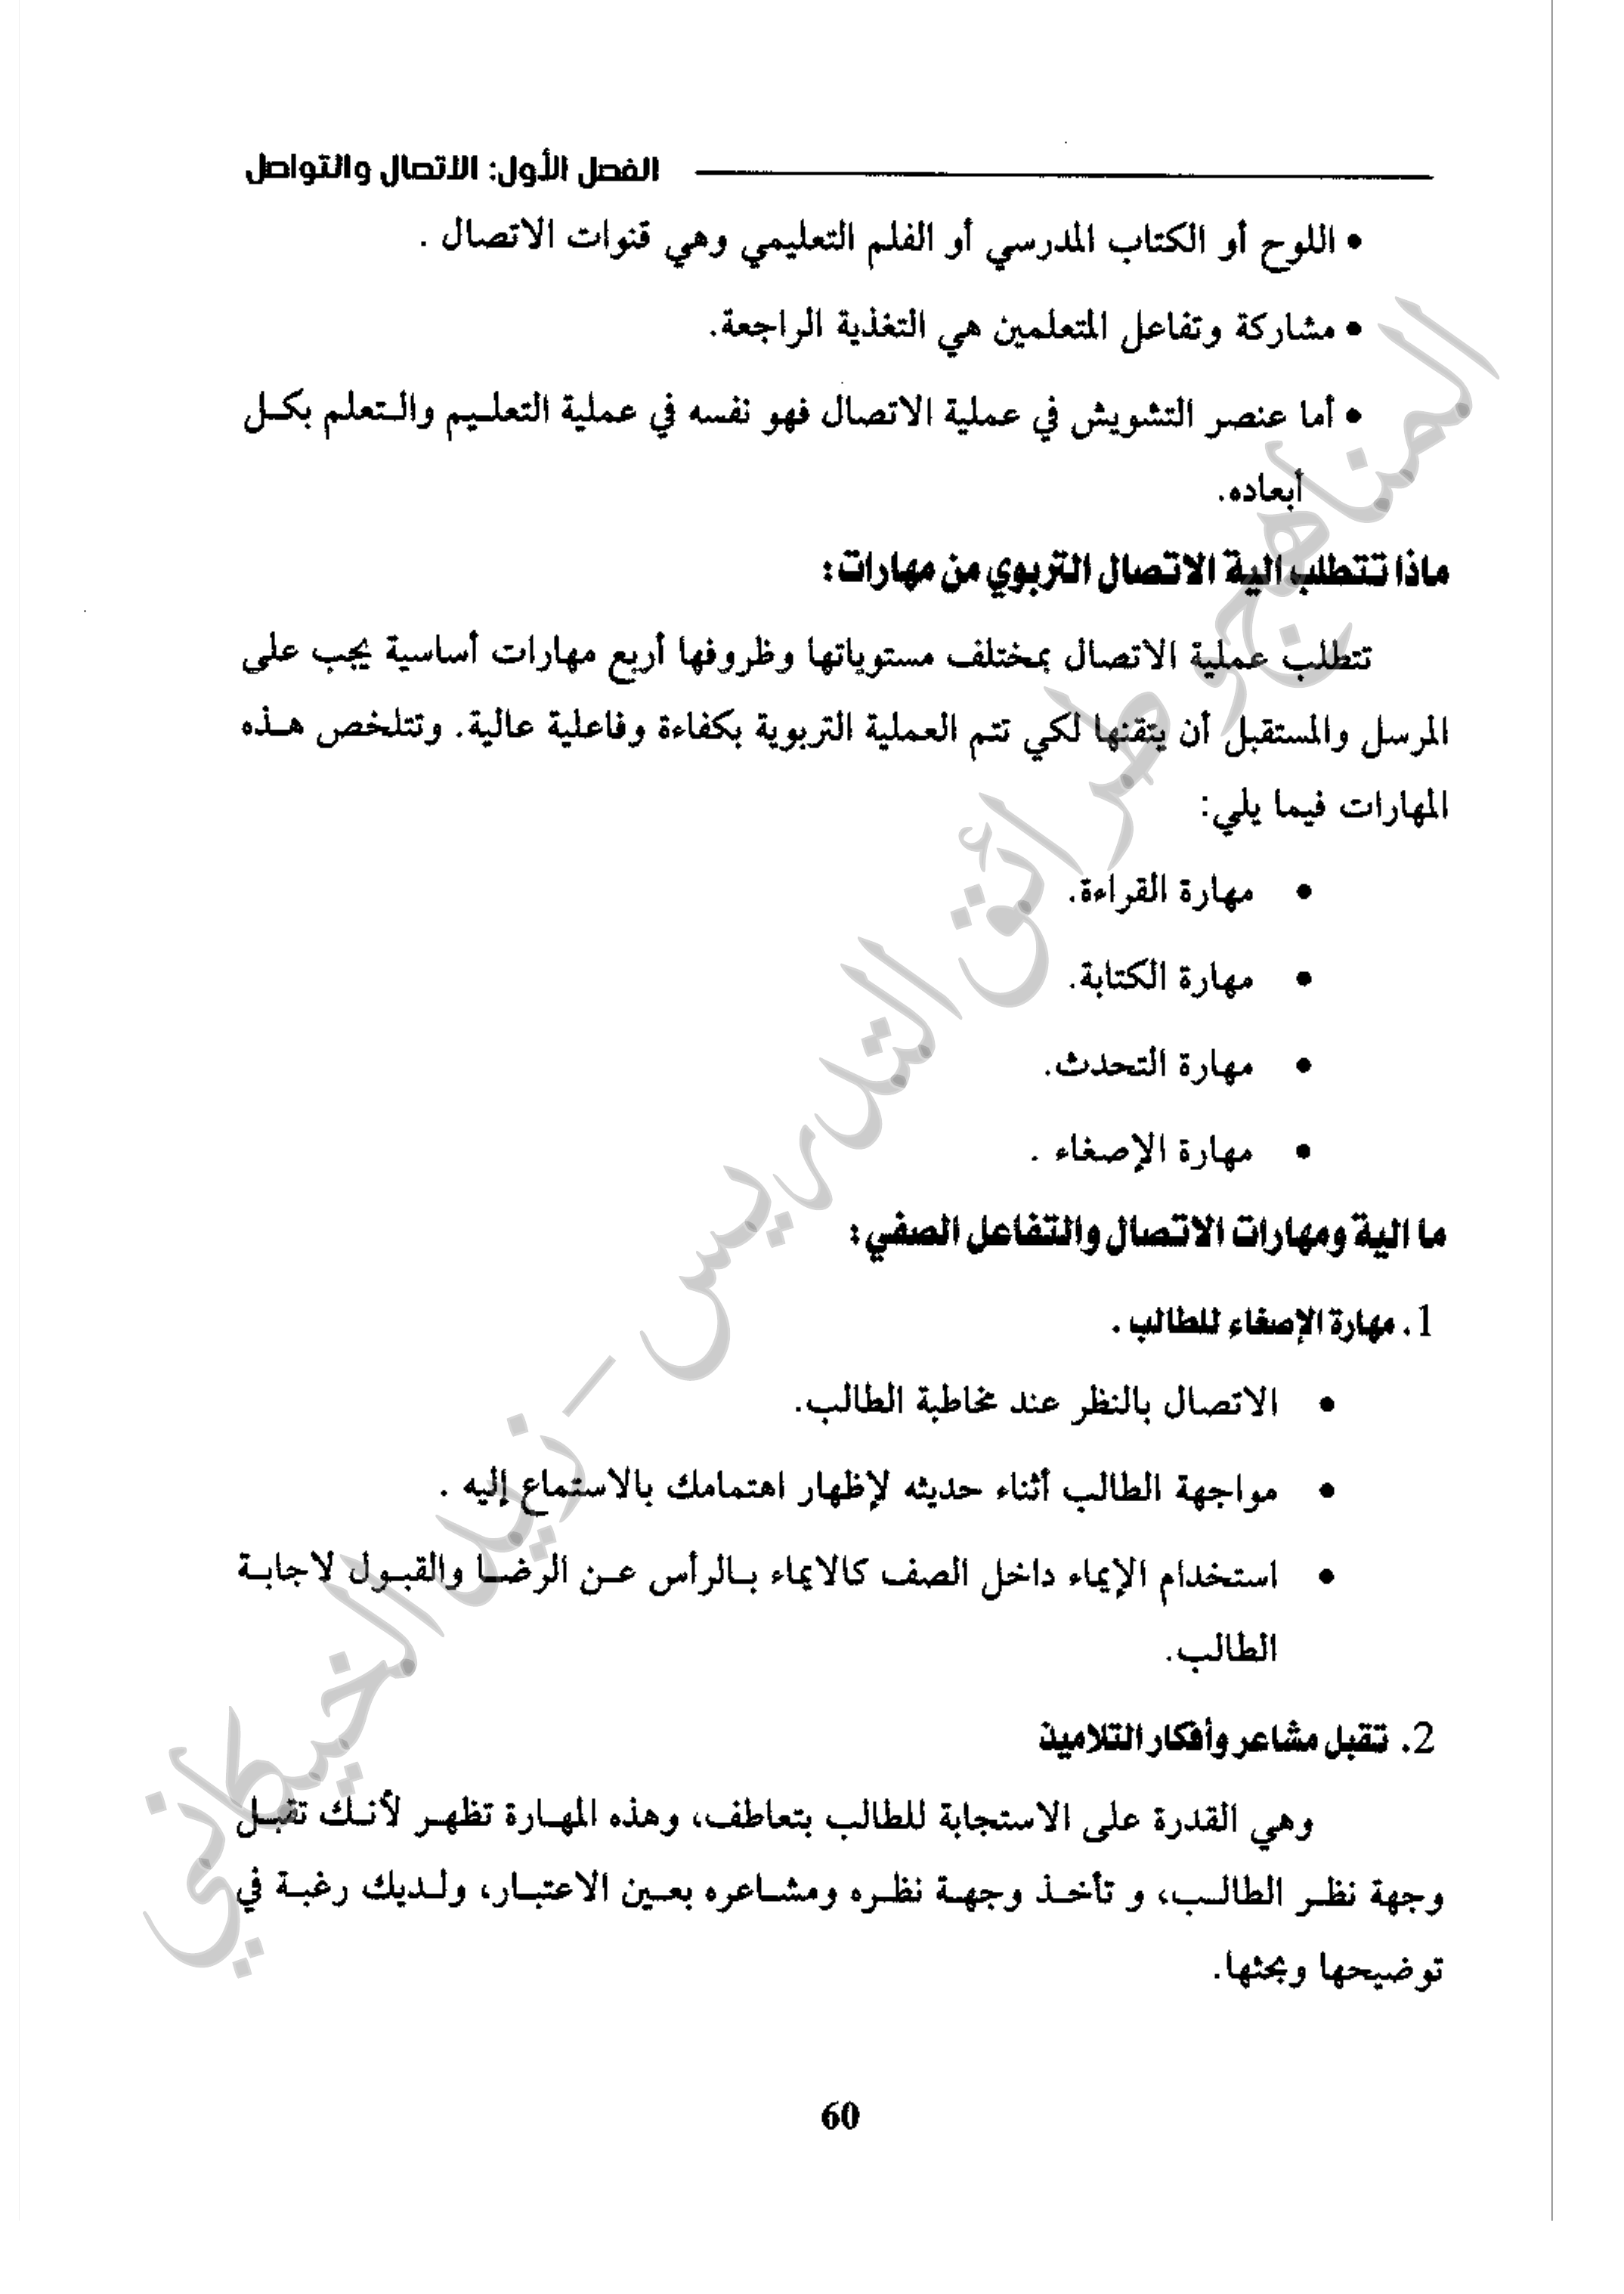 الفصل الأول: الاتصال والتواصل
• اللوح أو الكتاب المدرسي أو الفلم التعليمي وهي قنوات الاتصال .
• مشاركة وتفاعل المتعلمين هي التغذية الراجعة.
• أما عنصر التشويش في عملية الاتصال فهو نفسه في عملية التعليم والتعلم بكل
أبعاده.
ماذا تتطلب الية الاتصال التربوي من مهارات:
تتطلب عملية الاتصال بمختلف مستوياتها وظروفها أربع مهارات أساسية يجب على
المرسل والمستقبل أن يتقنها لكي تتم العملية التربوية بكفاءة وفاعلية عالية. وتتلخص هذه
المهارات فيما يلي:
• مهارة القراءة.
• مهارة الكتابة.
• مهارة التحدث.
• مهارة الإصغاء .
ما الية ومهارات الاتصال والتفاعل الصفي:
1. مهارة الإصغاء للطالب .
• الاتصال بالنظر عند مخاطبة الطالب.
• مواجهة الطالب أثناء حديثه لإظهار اهتمامك بالاستماع إليه .
• استخدام الإيماء داخل الصف كالايماء بالرأس عن الرضا والقبول لاجابة
الطالب.
2. تقبل مشاعر وأفكار التلاميذ
وهي القدرة على الاستجابة للطالب بتعاطف، وهذه المهارة تظهر لأنك تقبل
وجهة نظر الطالب، و تأخذ وجهة نظره ومشاعره بعين الاعتبار، ولديك رغبة في
توضيحها وبحثها.
60
المناهج وطرائق التدريس - زيد الخيكاني